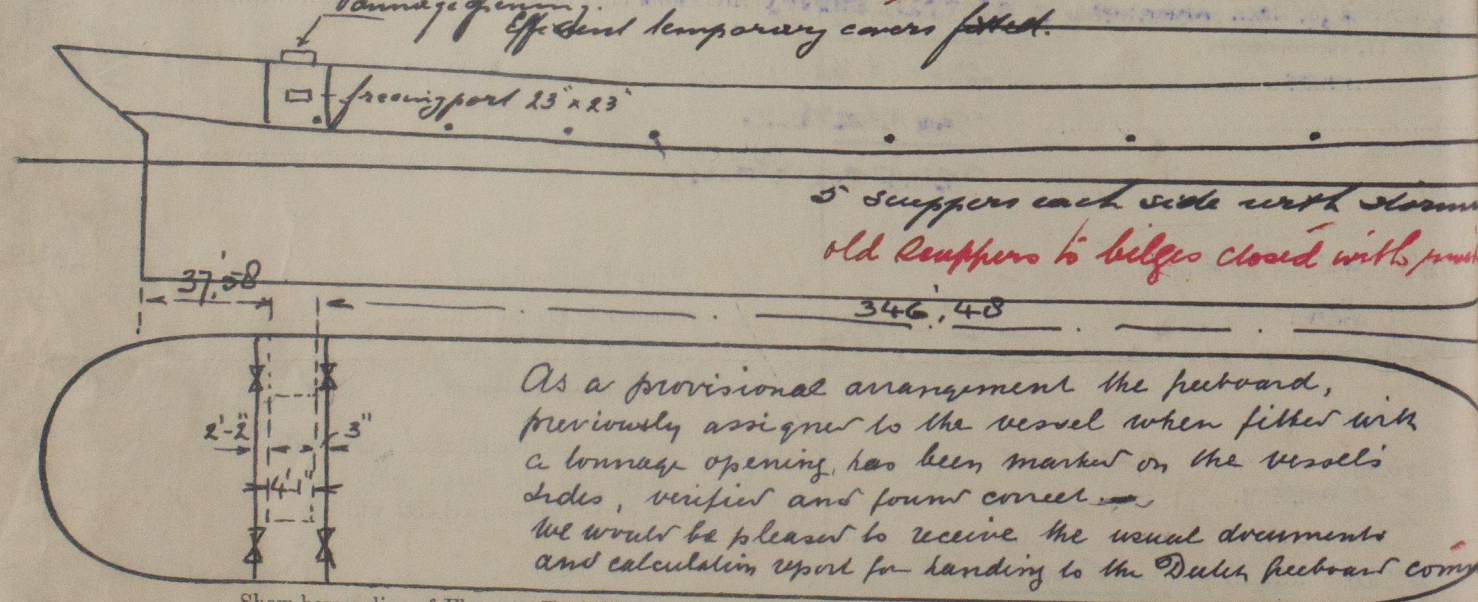 Tonnage opening.
Efficient temporary covers fitted.
freeing port 23" x 23"
5 scuppers each side with storm
old scuppers to bilges closed with
37,'58
346,'48
2'-2"
3"
4'-1"
As a provisional arrangement the freeboard,
previously assigned to the vessel when fitted with
a tonnage opening, has been marked on the vessel's
sides, verified and found correct —
We would be pleased to receive the usual documents
and calculation report for handing to the Dutch freeboard com